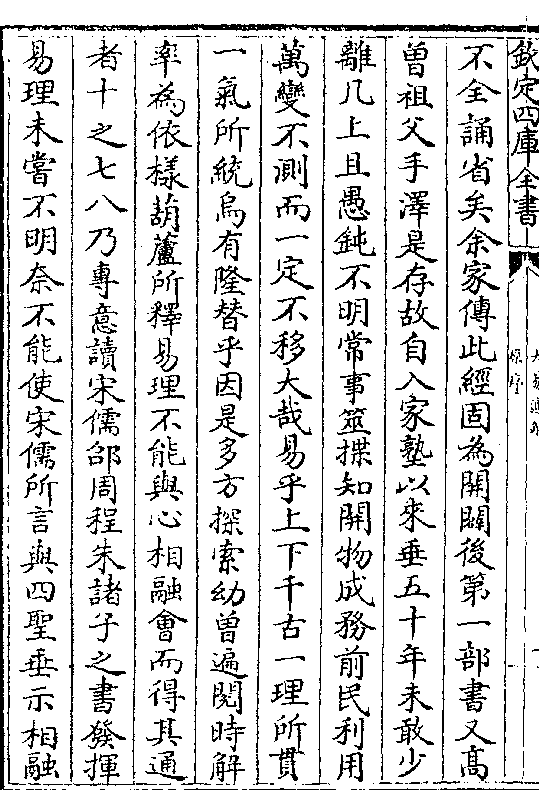 欽定四庫全書
不全誦省矣余家傳此經固為開闢後第一部書又髙
曾祖父手澤是存故自入家塾以來垂五十年未敢少
離几上且愚鈍不明常事筮揲知開物成務前民利用
萬變不測而一定不移大哉易乎上下千古一理所貫
一氣所統烏有隆替乎因是多方探索幼曾遍閱時解
率為依樣葫蘆所釋易理不能與心相融會而得其通
者十之七八乃專意讀宋儒邵周程朱諸子之書發揮
易理未嘗不明奈不能使宋儒所言與四聖垂示相融